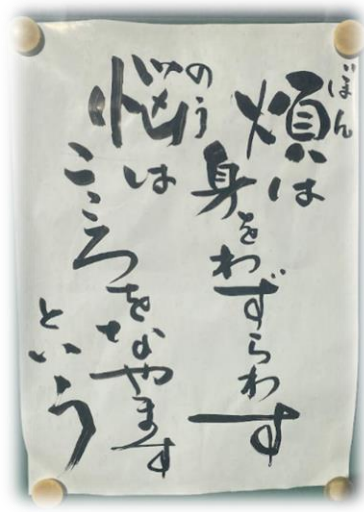 煩は
ぼん
身をわずらわす
悩は
のう
こころをなやます
という